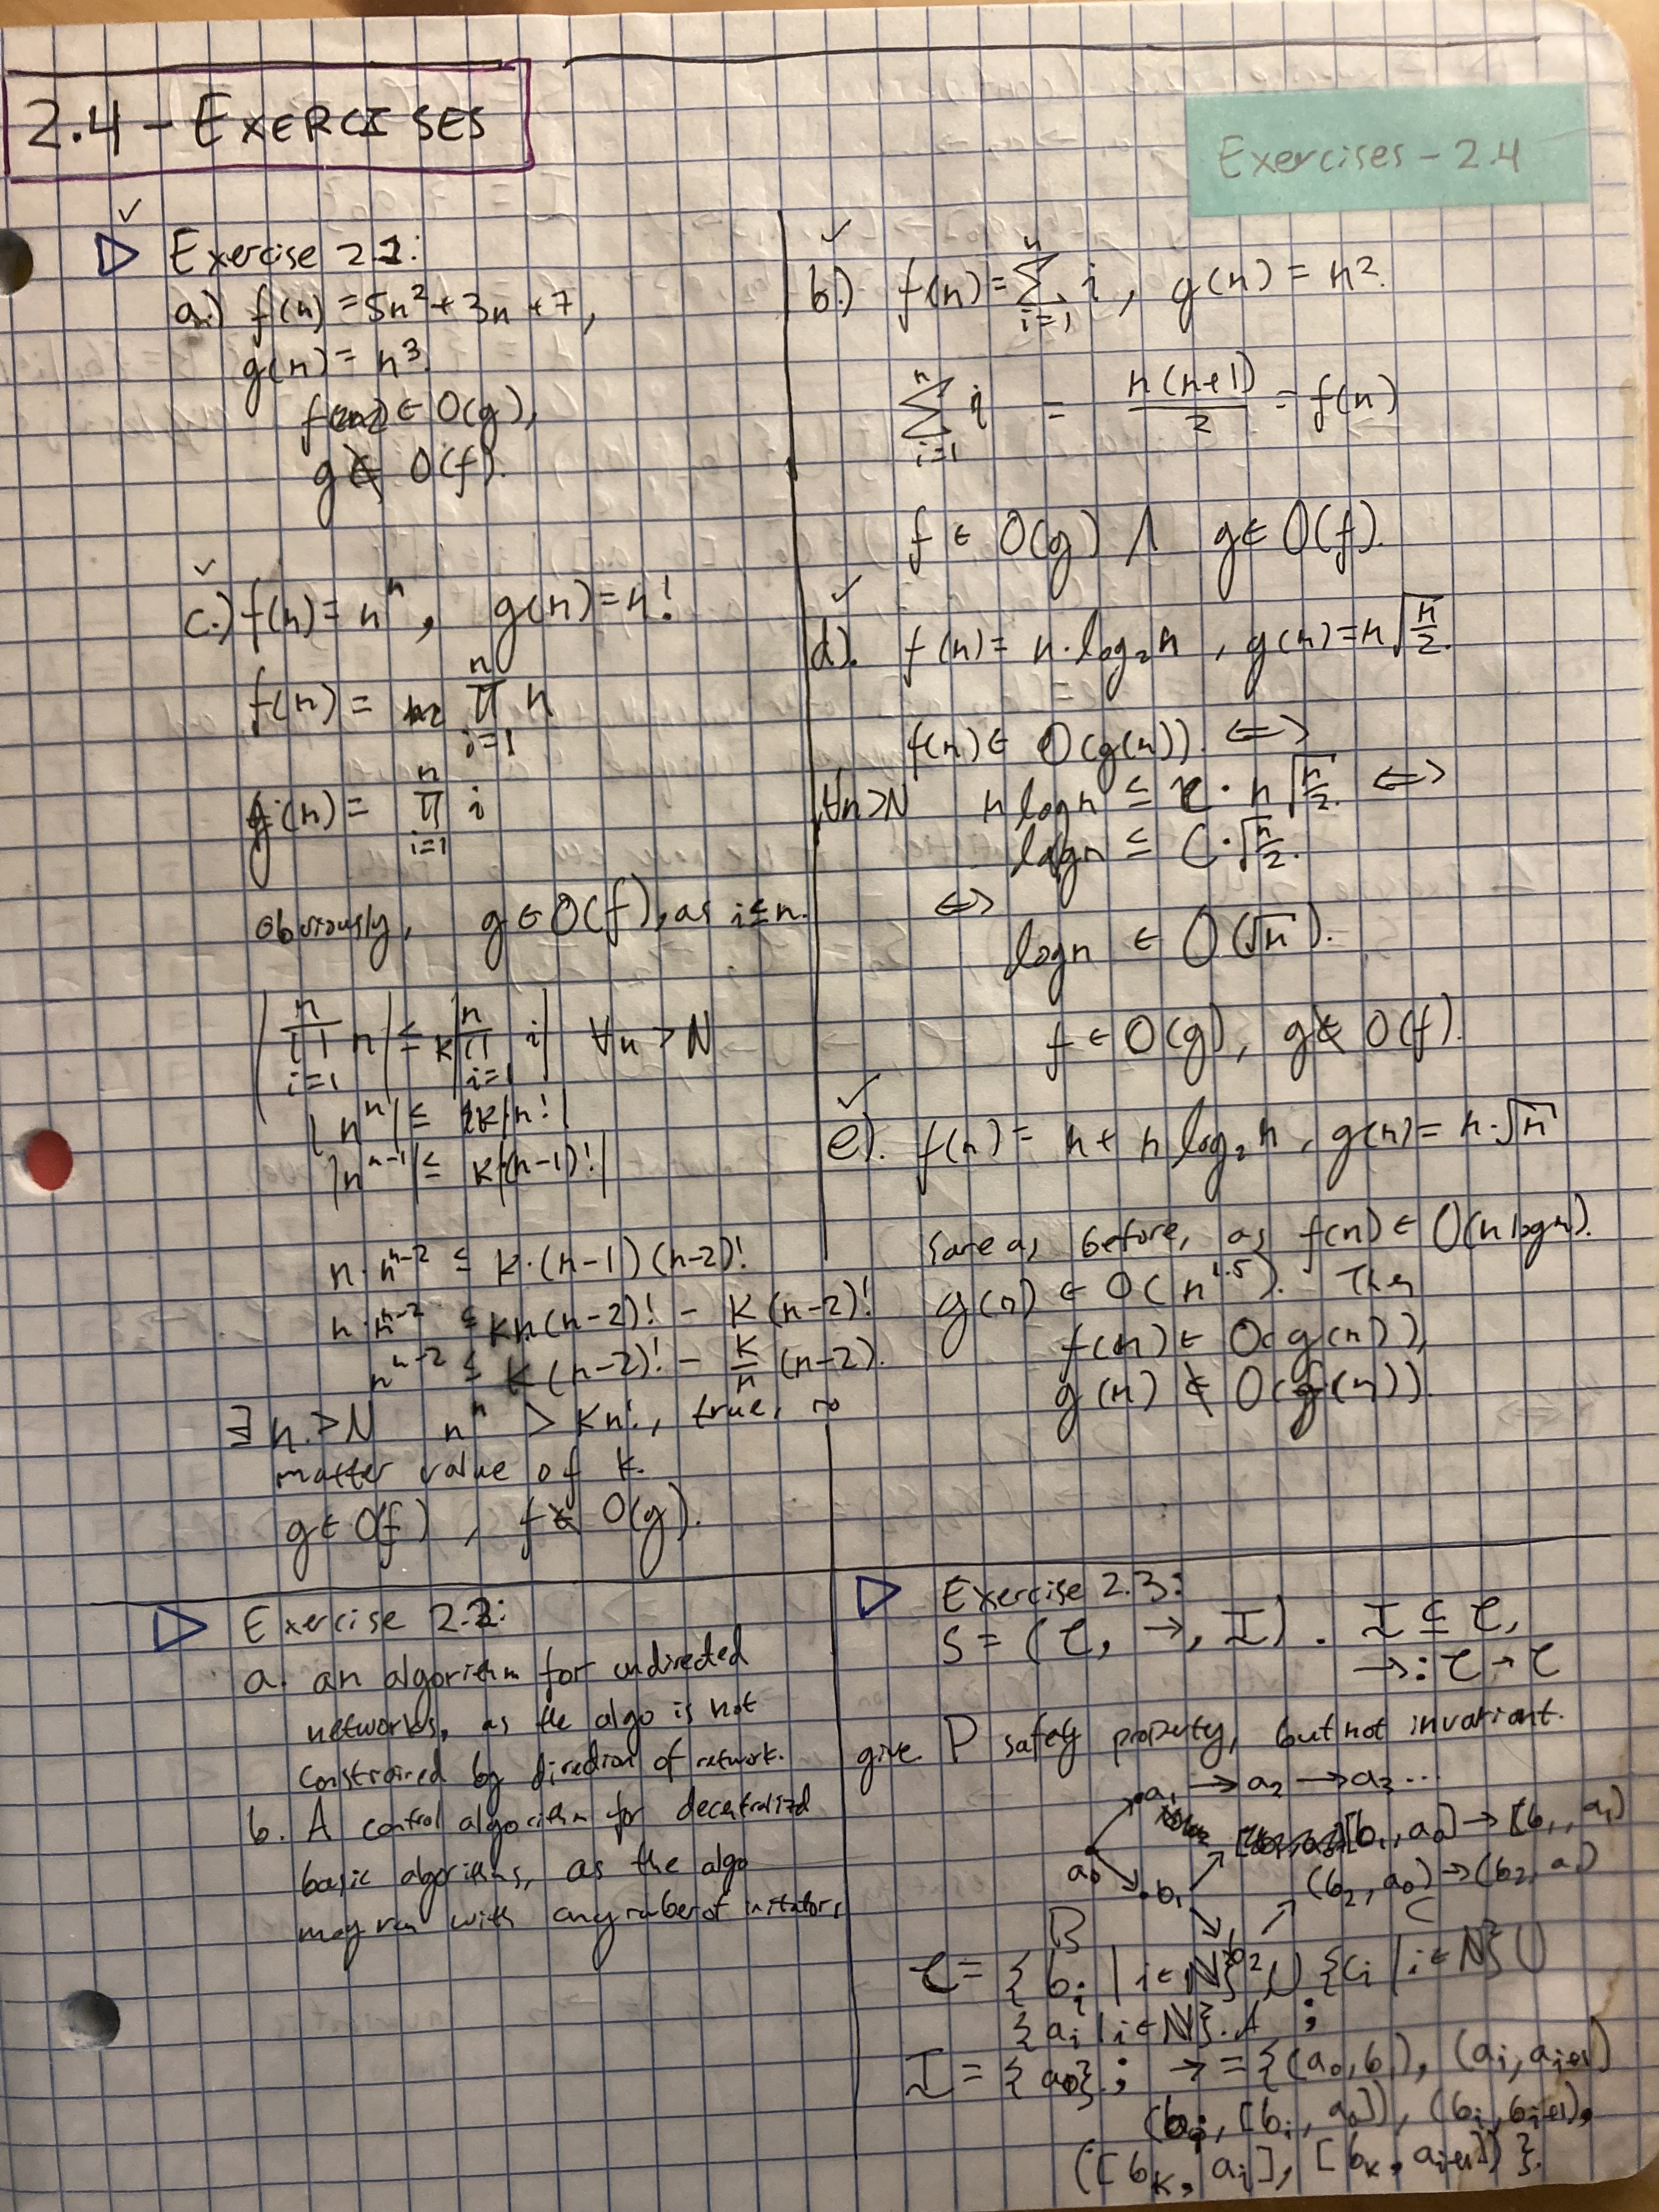 2.4 - EXERCISES
Exercises - 2.4
Exercise 2.1:
a.) f(n) = 5n² + 3n + 7,
g(n) = n³.
∈ O(g),
g ∉ O(f).
b.) f(n) = ∑_{i=1}^{n} i, g(n) = n².
∑_{i=1}^{n} i = n(n+1)/2 = f(n)
f ∈ O(g) ∧ g ∈ O(f).
c.) f(n) = nⁿ, g(n) = n!
f(n) = ∏_{i=1}^{n} n
g(n) = ∏_{i=1}^{n} i
obviously, g ∈ O(f), as i ≤ n.
|∏_{i=1}^{n} n| ≤ k|∏_{i=1}^{n} i| ∀n > N
|nⁿ| ≤ k|n!|
|n^{n-1}| ≤ k|(n-1)!|
n·n^{n-2} ≤ k·(n-1)(n-2)!
n·n^{n-2} ≤ kn(n-2)! - k(n-2)!
n^{n-2} ≤ k(n-2)! - k/n (n-2).
∃ n > N nⁿ > kn!, true, no
matter value of k.
g ∈ O(f), f ∉ O(g).
d). f(n) = n·log₂n, g(n) = n√(n/2).
f(n) ∈ O(g(n)). ⟺
∀n>N n log n ≤ c·n√(n/2). ⟺
log n ≤ C·√(n/2).
⟺
log n ∈ O(√n).
f ∈ O(g), g ∉ O(f).
e). f(n) = n + n log₂ n, g(n) = n·√n
Same as before, as f(n) ∈ O(n log n).
g(n) ∈ O(n^{1.5}). Then
f(n) ∈ O(g(n)),
g(n) ∉ O(f(n)).
Exercise 2.2:
a. an algorithm for undirected
networks, as the algo is not
constrained by direction of network.
b. A control algorithm for decentralizd
basic algorithms, as the algo
may run with any number of initators
Exercise 2.3:
S = (C, →, I). I ⊆ C,
→: C → C
give P safety property, but not invariant.
a₁ → a₂ → a₃ ...
[b₁, a₀] → [b₁, a₁)
a₀ b₁ (b₂, a₀) → (b₂, a₁)
B b₂ C
C = {b_i | i ∈ ℕ}² ∪ {c_i | i ∈ ℕ} ∪
{a_i | i ∈ ℕ}. A ;
I = {a₀}; → = {(a₀, b₁), (a_i, a_{i+1})
(b_i, [b_i, a₀]), (b_i, b_{i+1}),
([b_k, a_i], [b_k, a_{i+1}])}.